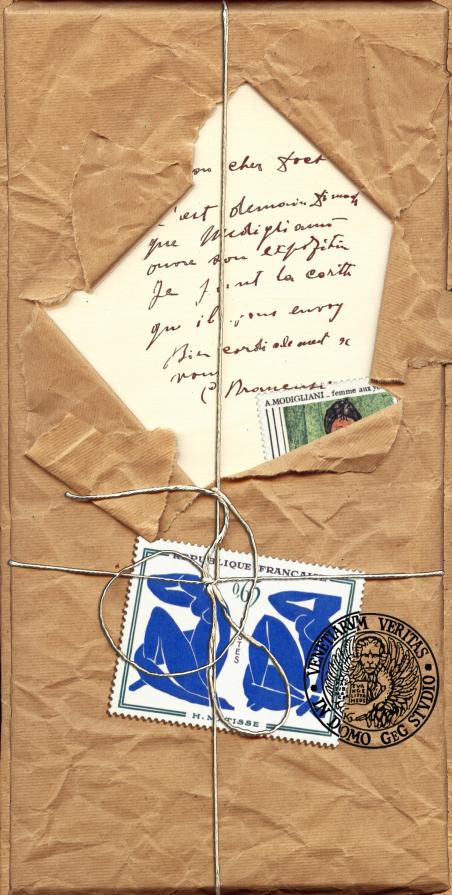 mon cher Doct
C'est demain Dimanc
que Modigliani
ouvre son exposition
Je joint la carte
qu'il vous envoy
Bien cordialement a
vous
A. MODIGLIANI _ femme aux y
REPUBLIQUE FRANÇAISE
0,60
POSTES
H. MATISSE
VENETARVM VERITAS
IN DOMO GEG STVDIO